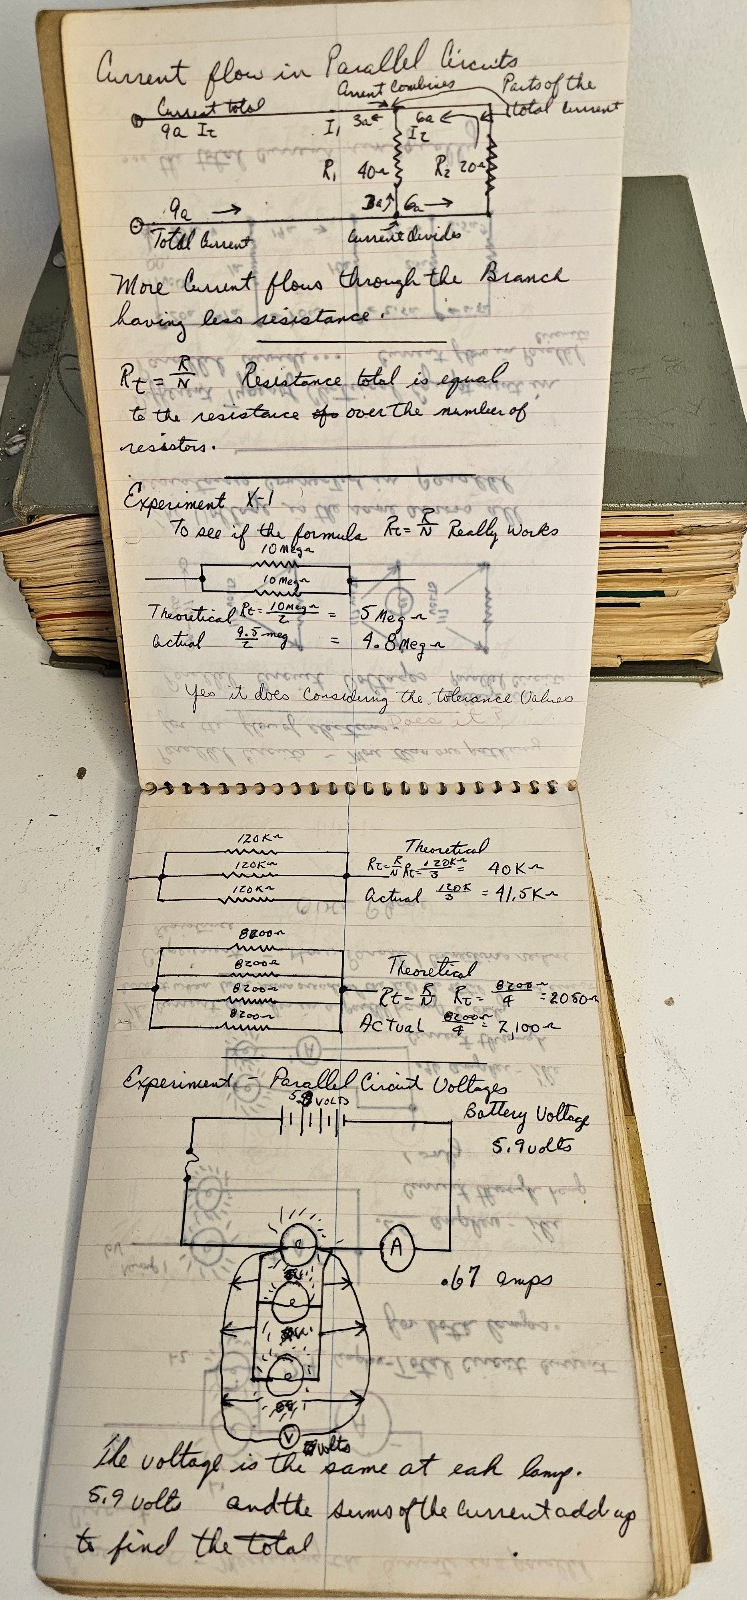 Current flow in Parallel Circuits
Current Combines
Parts of the
total current
Current total
9a It
I1 3a
6a
I2
R1 40Ω
R2 20Ω
9a
3a 6a
Total Current
Current divides
More Current flows through the Branch
having less resistance.
Rt = R/N Resistance total is equal
to the resistance over the number of
resistors.
Experiment X-1
To see if the formula Rt = R/N Really Works
10 MegΩ
10 MegΩ
Theoretical Rt = 10 MegΩ/2 = 5 MegΩ
actual 9.5 meg/2 = 4.8 MegΩ
Yes it does Considering the tolerance Values
Does it
120KΩ
120KΩ
120KΩ
Theoretical
Rt = R/N Rt = 120KΩ/3 = 40KΩ
Actual 120K/3 = 41.5KΩ
8200Ω
8200Ω
8200Ω
8200Ω
Theoretical
Rt = R/N Rt = 8200Ω/4 = 2050Ω
Actual 8200Ω/4 = 2,100Ω
Experiment - Parallel Circuit Voltages
VOLTS
Battery Voltage
5.9 volts
A
.67 amps
V
volts
The voltage is the same at eah lamp.
5.9 volts and the sums of the current add up
to find the total